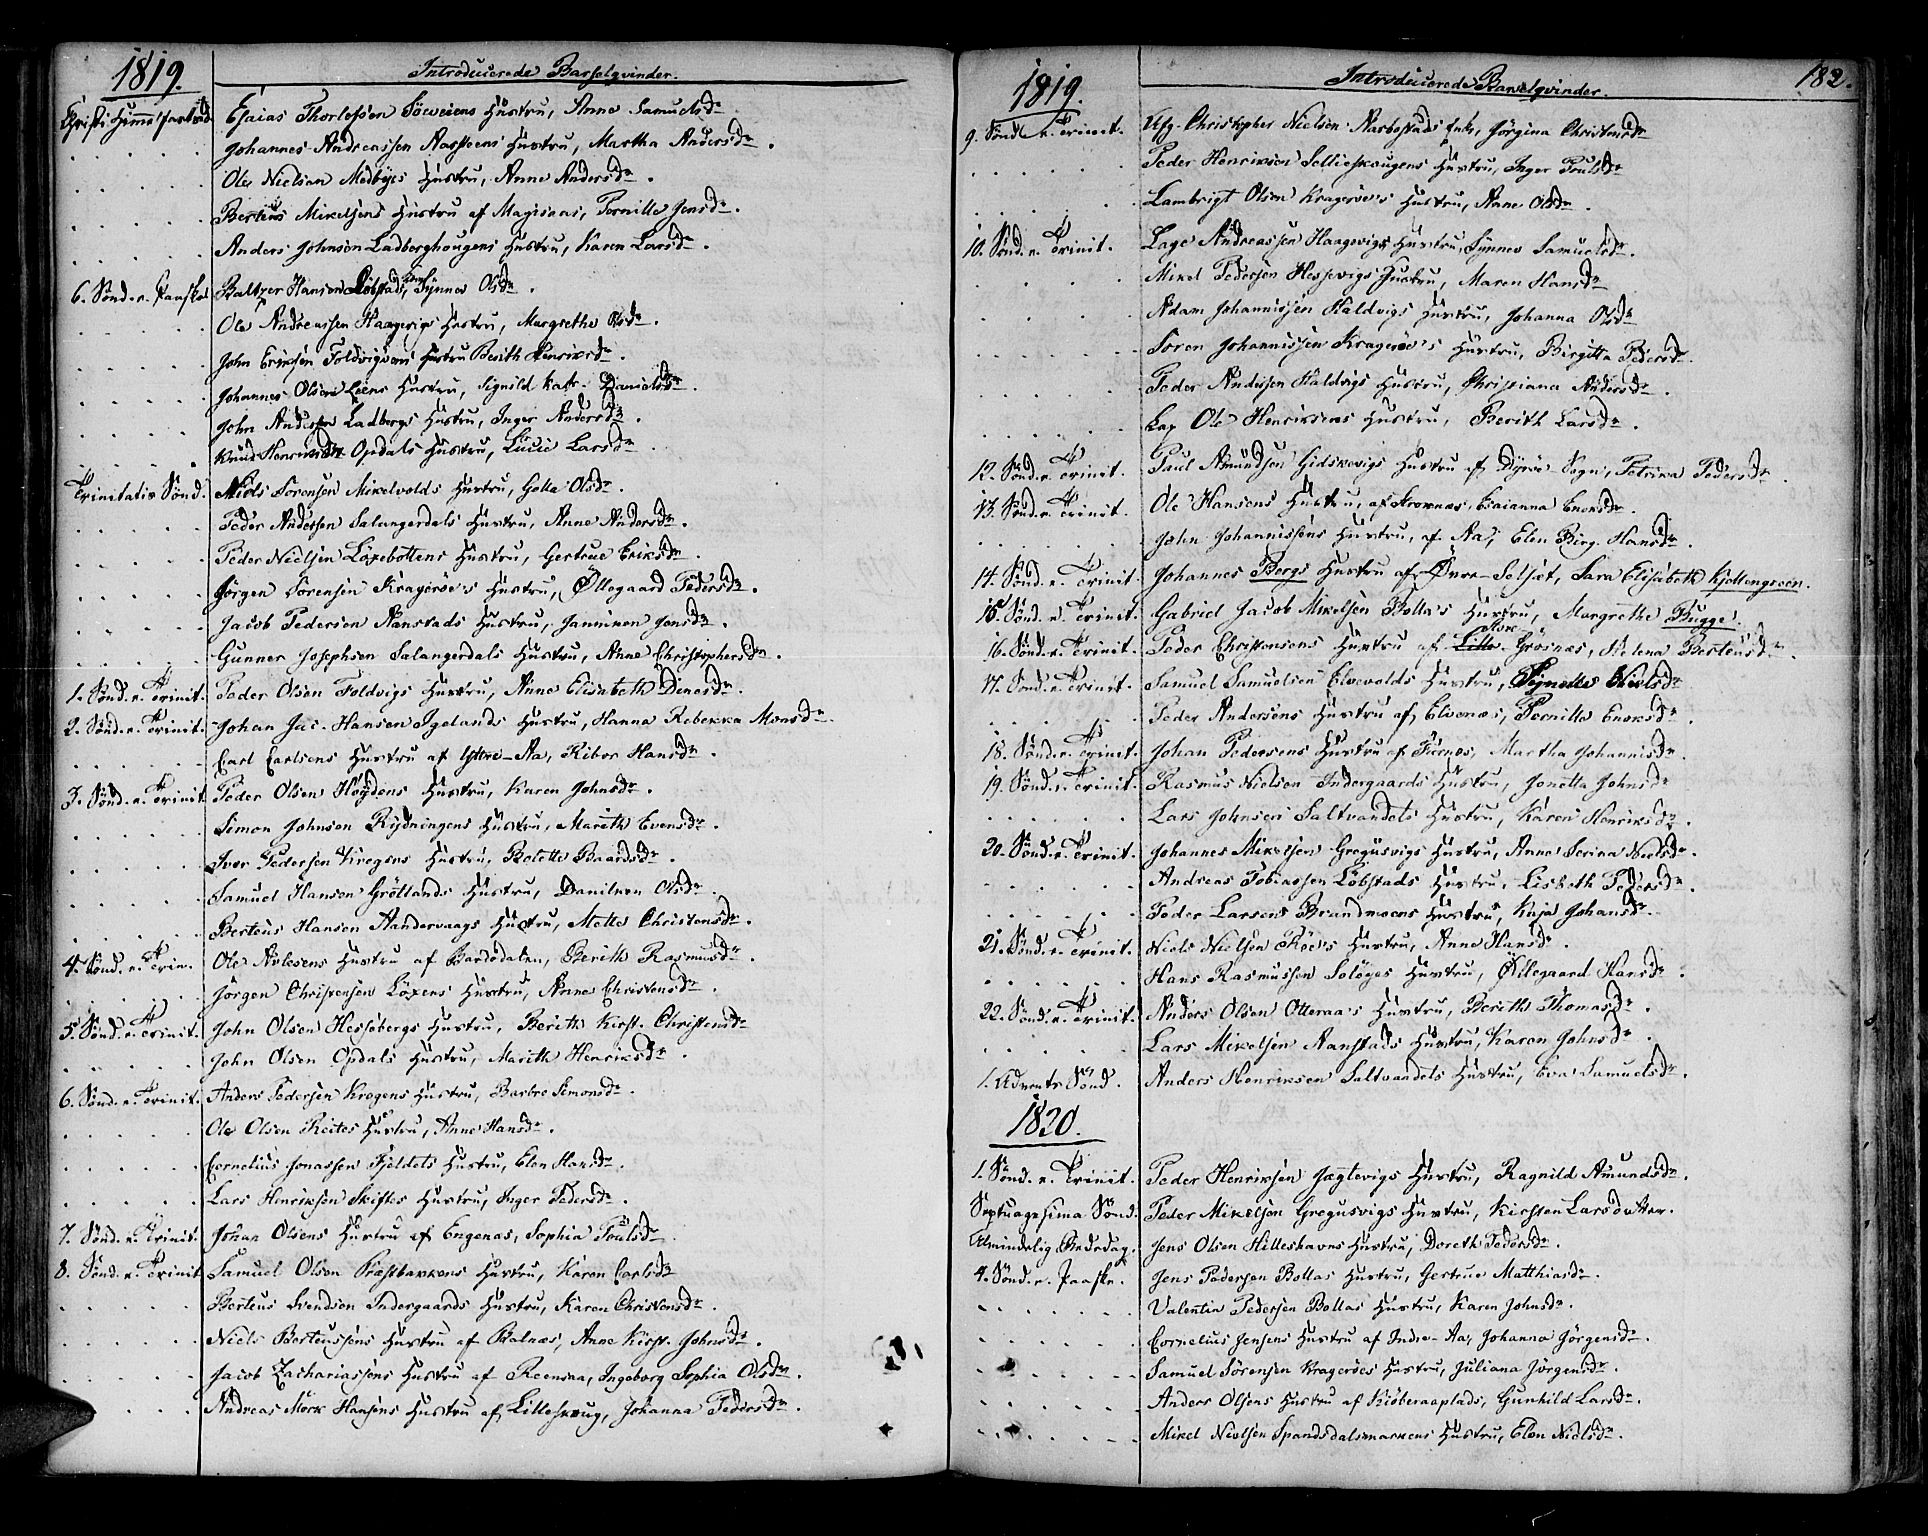 1819.
Introducerede Barselqvinder.
Christi Himmelfartsd. Esaias Thorlefsen Söeveiens Hustru, Anne Samuelsdr
Johannes Andreassen Aarsteens Hustru, Martha Andersdr.
Ole Nielsen Medbyes Hustru, Anne Andersdr.
Berteus Mikelsens Hustru af Magisaas, Pernille Jensdr.
Anders Johnsen Ladberghougens Hustru, Karen Larsdr.
6. Sönd. e. Paaske Baltzer Hansen Löbstads, Synnev Olsdr.
Ole Andreassen Haagevigs Hustru, Margrethe Olsdr.
John Eriksen Foldvigvans Hustru Berith Henriksdr.
Johannes Olsens Leens Hustru, Signild Kath. Danielsdr.
John Andersen Ladbergs Hustru, Inger Andersdr.
Knud Henriksen Opdals Hustru, Lucie Larsdr.
Trinitatis Sönd. Niels Sörensen Mikelvolds Hustru, Golla Olsdr.
Peder Andersen Salangerdals Hustru, Anne Andersdr.
Peder Nielsen Löxebottens Hustru, Gertrue Eriksdr.
Jörgen Sörensen Kragerőe's Hustru, Öllegaard Pedersdr.
Jacob Pedersen Aanstads Hustru, Janniken Jensdr.
Gunner Josephsen Salangerdals Hustru, Anne Christophersdr.
1. Sönd. e. Trinit. Peder Olsen Foldvigs Hustru, Anne Elisabeth Dinesdr.
2. Sönd. e. Trinit. Johan Jac. Hansen Igelands Hustru, Hanna Rebekka Monsdr.
Carl Carlsens Hustru af Yttre-Aa, Kibor Hansdr.
3. Sönd. e. Trinit. Peder Olsen Höydens Hustru, Karen Johnsdr.
Simon Johnsen Rydningens Hustru, Marith Evensdr.
Iver Pedersen Krogens Hustru, Bolette Baardsdr.
Samuel Hansen Gröllands Hustru, Daniken Olsdr.
Berteus Hansen Aandervaags Hustru, Mette Christensdr.
4. Sönd. e. Trin. Ole Avlesens Hustru af Bardodalen, Berith Rasmusdr.
Jörgen Christensen Löxens Hustru, Anne Christensdr.
5. Sönd. e. Trinit. John Olsen Hessebergs Hustru, Berith Kirst. Christensdr
John Olsen Opdals Hustru, Marith Henriksdr.
6. Sönd. e. Trinit. Anders Pedersen Krogens Hustru, Barbro Simonsdr.
Ole Olsen Reites Hustru, Anne Hansdr.
Cornelius Jonassen Fjeldets Hustru, Elen Hansdr.
Lars Henriksen Skiftes Hustru, Inger Pedersdr.
7. Sönd. e. Trinit. Johan Olsens Hustru af Engenæs, Sophia Poulsdr.
8. Sönd. e. Trinit. Samuel Olsen Præstbakkens Hustru, Karen Carlsdr
Berteus Svendsen Indergaards Hustru, Karen Christensdr.
Niels Berteussens Hustru af Balnæs, Anne Kirst. Johnsdr.
Jacob Zachariassens Hustru af Reensaa, Ingeborg Sophia Olsdr.
Andreas Mörk Hansens Hustru af Lilleskoug, Johanna Pedersdr.
1819.
Introducerede Barselqvinder.
182.
9. Sönd. e. Trinit. Afg. Christopher Nielsen Aarbostads Enke, Jörgina Christensdr
Peder Henriksen Sellieskougens Hustru, Inger Poulsdr
Lambrigt Olsen Krageröe's Hustru, Anne Olsdr.
10. Sönd. e. Trinit. Lage Andreassen Haagevigs Hustru, Synnev Samuelsdr.
Mikel Pedersen Hessevigs Hustru, Maren Hansdr
Adam Johannissen Haldvigs Hustru, Johanna Olsdr
Sören Johannissen Krageröe's Hustru, Birgitta Pedersdr.
Peder Andersen Haldvigs Hustru, Christiana Andersdr.
Lap Ole Henriksens Hustru, Berith Larsdr.
12. Sönd. e. Trinit. Paul Amundsen Gidskevigs Hustru af Dyröe Sogn, Petrikka Pedersdr.
13. Sönd. e. Trinit. Ole Hansens Hustru, af Krognæs, Esaianna Enoksdr.
John Johannissens Hustru, af Aa, Elen Birg. Hansdr.
14. Sönd. e. Trinit. Johannes Bergs Hustru af Övre-Selset, Sara Elisabeth Kjellengreen.
15. Sönd. e. Trinit. Gabriel Jacob Mikelsen Bolla's Hustru, Margrethe Bugge.
16. Sönd. e. Trinit. Peder Christensens Hustru af Lille Store-Grösnæs, Helena Berteusdr.
17. Sönd. e. Trinit. Samuel Samuelsen Elvevolds Hustru, Signelle Nielsdr
Peder Andersens Hustru af Elvenæs, Pernille Enoksdr.
18. Sönd. e. Trinit. Johan Pedersens Hustru af Furnæs, Martha Johannisdr.
19. Sönd. e. Trinit. Rasmus Nielsen Indergaards Hustru, Jonetta Johnsdr
Lars Johnsen Saltvandets Hustru, Karen Henriksdr.
20. Sönd. e. Trinit. Johannes Mikelsen Gregusvigs Hustru, Anne Serina Nielsdr.
Andreas Tobiassen Löbstads Hustru, Lisbeth Pedersdr.
Peder Larsens Brandmoens Hustru, Kaja Johansdr.
21. Sönd. e. Trinit. Niels Nielsen Röe's Hustru, Anne Hansdr.
Hans Rasmussen Solöyes Hustru, Öllegaard Hansdr.
22. Sönd. e. Trinit. Anders Olsen Otteraa's Hustru, Berith Thomasdr.
Lars Mikelsen Aanstads Hustru, Karen Johnsdr.
1. Advents Sönd. Anders Henriksen Saltvandets Hustru, Eva Samuelsdr.
1820.
1. Sönd. e. Trinit. Peder Henriksen Jægtevigs Hustru, Ragnild Amundsdr.
Septuagesima Sönd. Peder Mikelsen Gregusvigs Hustru, Kirsten Larsdatter.
Almindelig Bededag. Jens Olsen Hilleshavns Hustru, Doreth Pedersdr.
4. Sönd. e. Paaske. Jens Pedersen Bollas Hustru, Gertrue Matthiasdr.
Valentin Pedersen Bollas Hustru, Karen Johnsdr.
Cornelius Jensens Hustru af Indre-Aa, Johanna Jörgensdr.
Samuel Sörensen Krageröes Hustru, Juliana Jörgensdr.
Anders Olsens Hustru af Kiöberaaplads, Gunhild Larsdr.
Mikel Nielsen Spandsdalsmarkens Hustru, Elen Nielsdr.